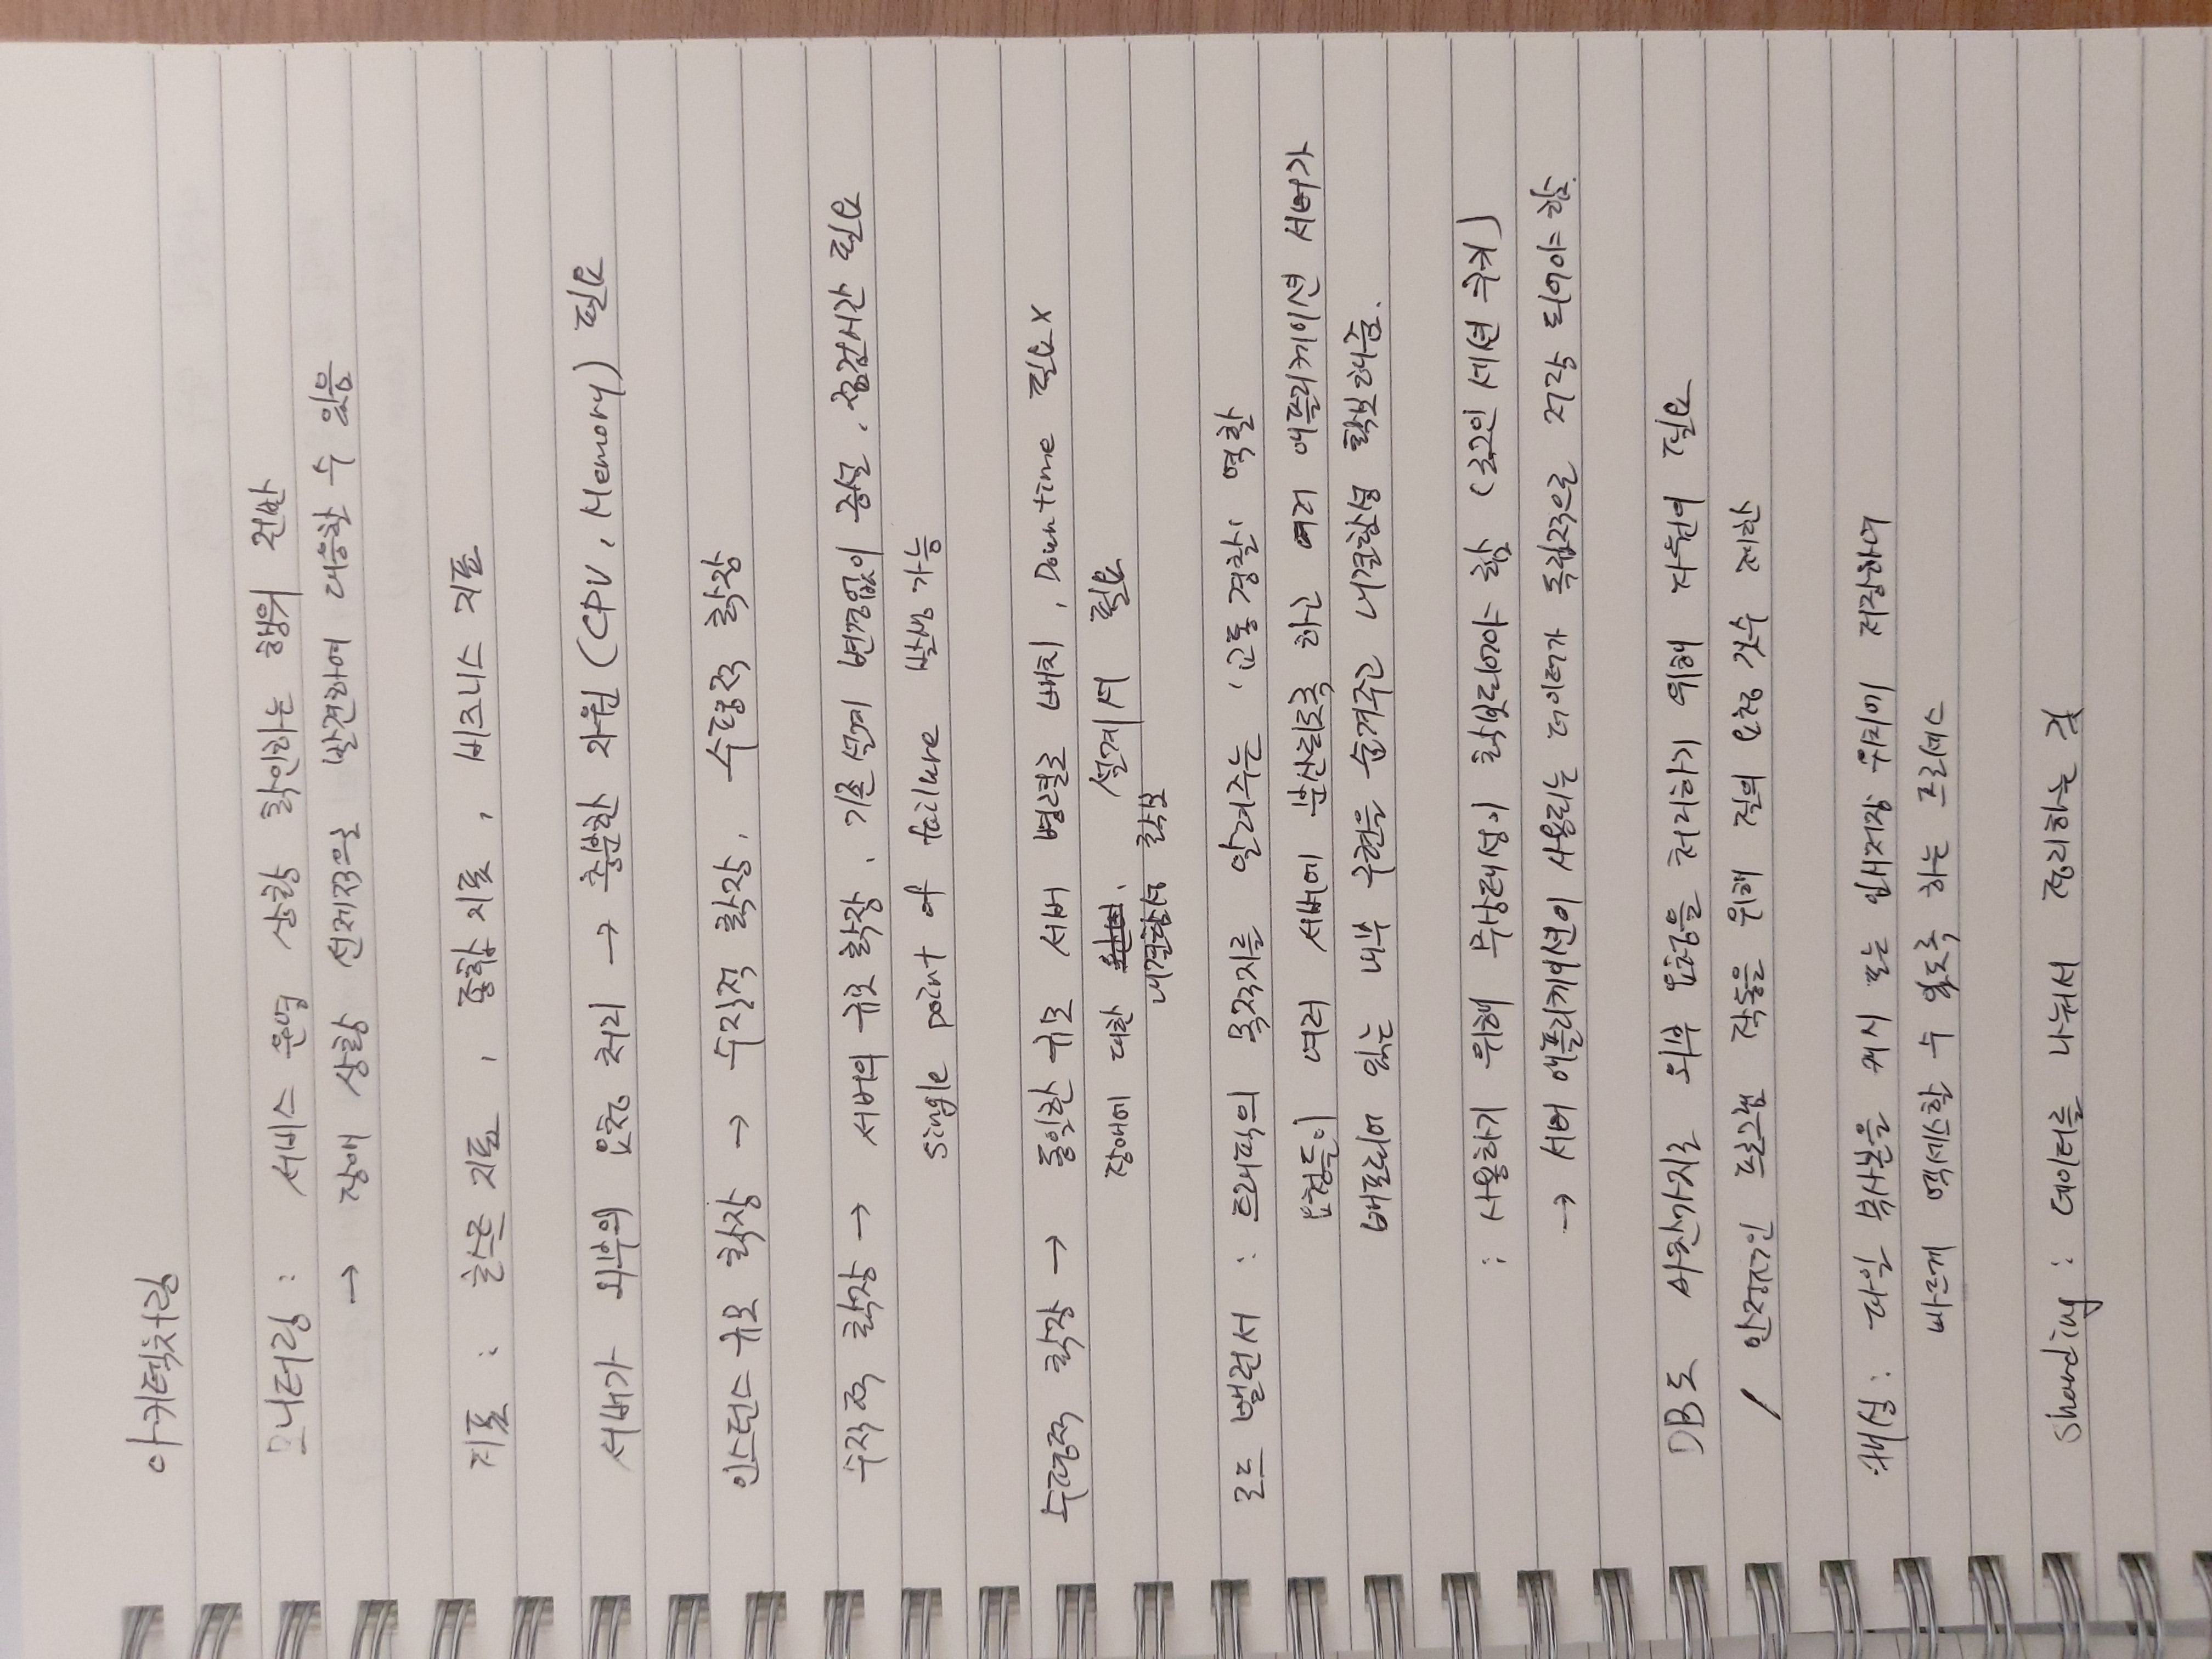 아키텍처링
모니터링 : 서비스 운영 상황 확인하는 행위 전반
→ 장애 상황 선제적으로 발견하여 대응할 수 있음
지표 : 호스트 지표 , 종합 지표 , 비즈니스 지표
서버가 외부의 요청 처리 → 충분한 자원 (CPU, Memory) 필요
인스턴스 규모 확장 → 수직적 확장, 수평적 확장
수직적 확장 → 서버의 규모 확장 , 기존 설계 변경없이 증설 , 점검시간 필요
single point of failure 발생 가능
수평적 확장 → 동일한 규모 서버 병렬로 배치 , Downtime 필요 X
장애에 대한 , 설계시 필요
내결함성 확보
로드 밸런서 : 트래픽의 목적지를 알려주는 '교통 경찰' 역할
요청들이 여러 서버에 분산되도록 하고 여러 애플리케이션 서버가
배포되어 있는 내부 구현을 숨겨주고 내결함성 확보해줌.
: 사용하기 위해 무상태성이 확보되어야 함 (로그인 세션 쿠키)
→ 서버 애플리케이션이 사용되는 데이터가 독립적으로 저장 되어야 함.
DB도 마찬가지로 외부 요청을 처리하기 위해 자원이 필요
/ 안정적인 프로그램 작동을 위해 질의 요청 갯수 제한
캐싱 : 파일 복사본을 캐시 또는 임시저장 위치에 저장하여
빠르게 엑세스할 수 있도록 하는 프로세스
Sharding : 데이터를 나눠서 정리하는 것